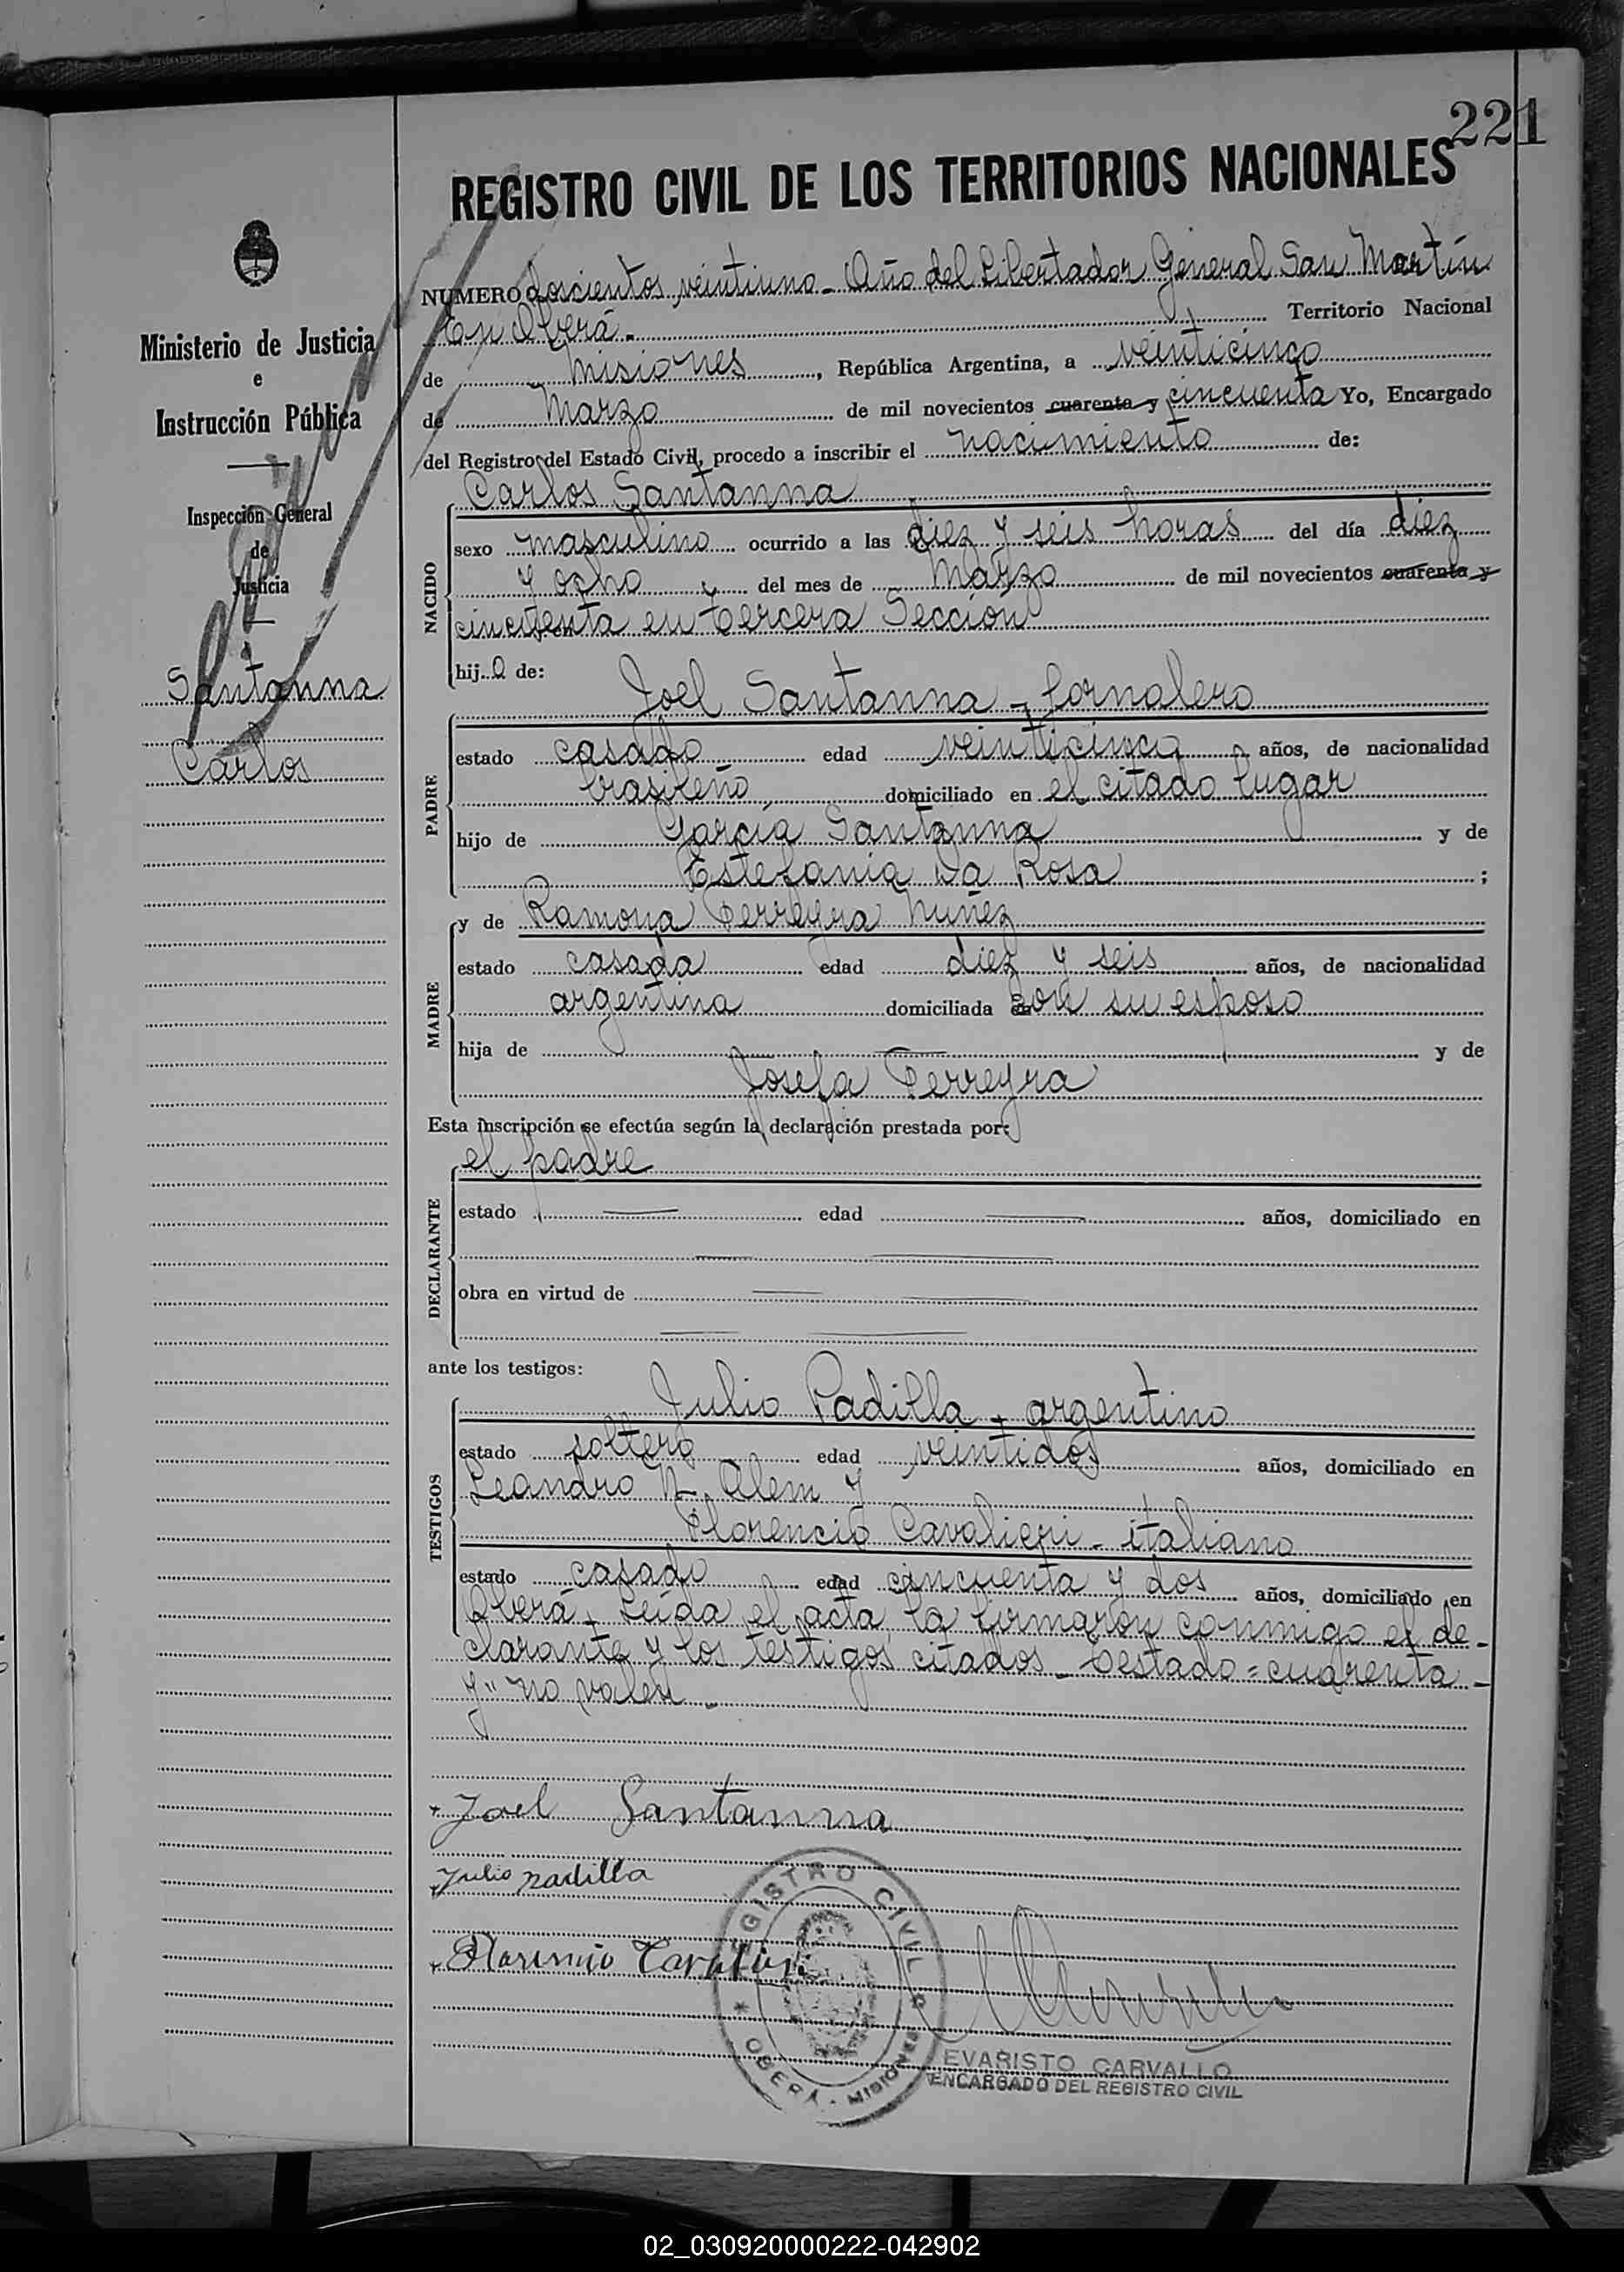 221
REGISTRO CIVIL DE LOS TERRITORIOS NACIONALES
Ministerio de Justicia
e
Instrucción Pública
Inspección General
de
Justicia
Santanna
Carlos
NUMERO doscientos veintiuno - Año del Libertador General San Martín
En Oberá - Territorio Nacional
de Misiones, República Argentina, a veinticinco
de Marzo de mil novecientos cuarenta y cincuenta Yo, Encargado
del Registro del Estado Civil, procedo a inscribir el nacimiento de:
NACIDO
Carlos Santanna
sexo masculino ocurrido a las diez y seis horas del día diez
y ocho del mes de Marzo de mil novecientos cuarenta y
cincuenta en tercera Sección
hijo de:
PADRE
Joel Santanna - Jornalero
estado casado edad veinticinco años, de nacionalidad
brasileño, domiciliado en el citado lugar
hijo de García Santanna y de
Estefania Da Rosa;
MADRE
y de Ramona Ferreyra Nuñez
estado casada edad diez y seis años, de nacionalidad
argentina domiciliada con su esposo
hija de y de
Josefa Ferreyra
Esta inscripción se efectúa según la declaración prestada por:
DECLARANTE
el padre
estado edad años, domiciliado en
obra en virtud de
ante los testigos:
TESTIGOS
Julio Padilla - argentino
estado soltero edad veintidos años, domiciliado en
Leandro N. Alem y
Florencio Cavalieri - italiano
estado casado edad cincuenta y dos años, domiciliado en
Oberá - Leída el acta, la firmaron conmigo el de-
clarante y los testigos citados - Testado = cuarenta -
y" no valen -
Joel Santanna
Julio Padilla
REGISTRO CIVIL
OBERA - MISIONES
EVARISTO CARVALLO
ENCARGADO DEL REGISTRO CIVIL
02_030920000222-042902